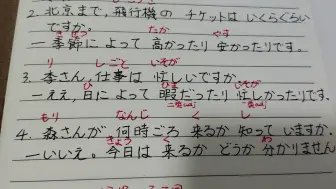 2. 北京まで、飛行機の チケットは いくらぐらい
ですか。
きせつ たか やす
一季節に よって 高かったり 安かったりです。
り しごと いそが
3. 李さん、仕事は 忙しいですか。
ひ ひま いそが
一ええ、日に よって 暇だったり 忙しかったりです。
もり なんじ く し
4. 森さんが 何時ごろ 来るか 知って いますか。
きょう く わ
一いいえ。今日は 来るか どうか 分かりません